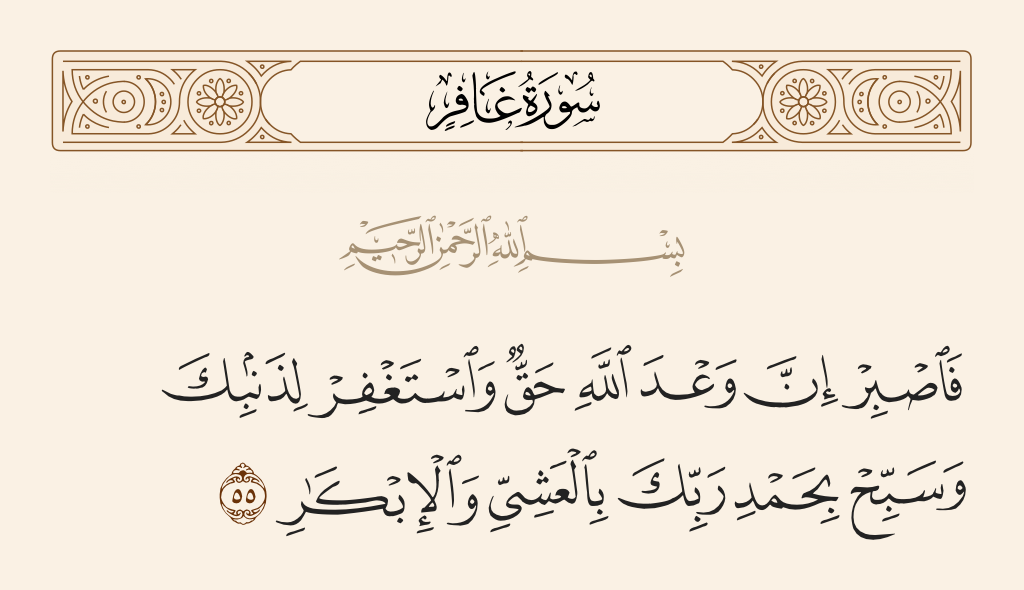 سُورَةُ غَافِرٍ
بِسْمِ ٱللَّهِ ٱلرَّحْمَٰنِ ٱلرَّحِيمِ
فَٱصْبِرْ إِنَّ وَعْدَ ٱللَّهِ حَقٌّ وَٱسْتَغْفِرْ لِذَنۢبِكَ
وَسَبِّحْ بِحَمْدِ رَبِّكَ بِٱلْعَشِىِّ وَٱلْإِبْكَٰرِ ٥٥